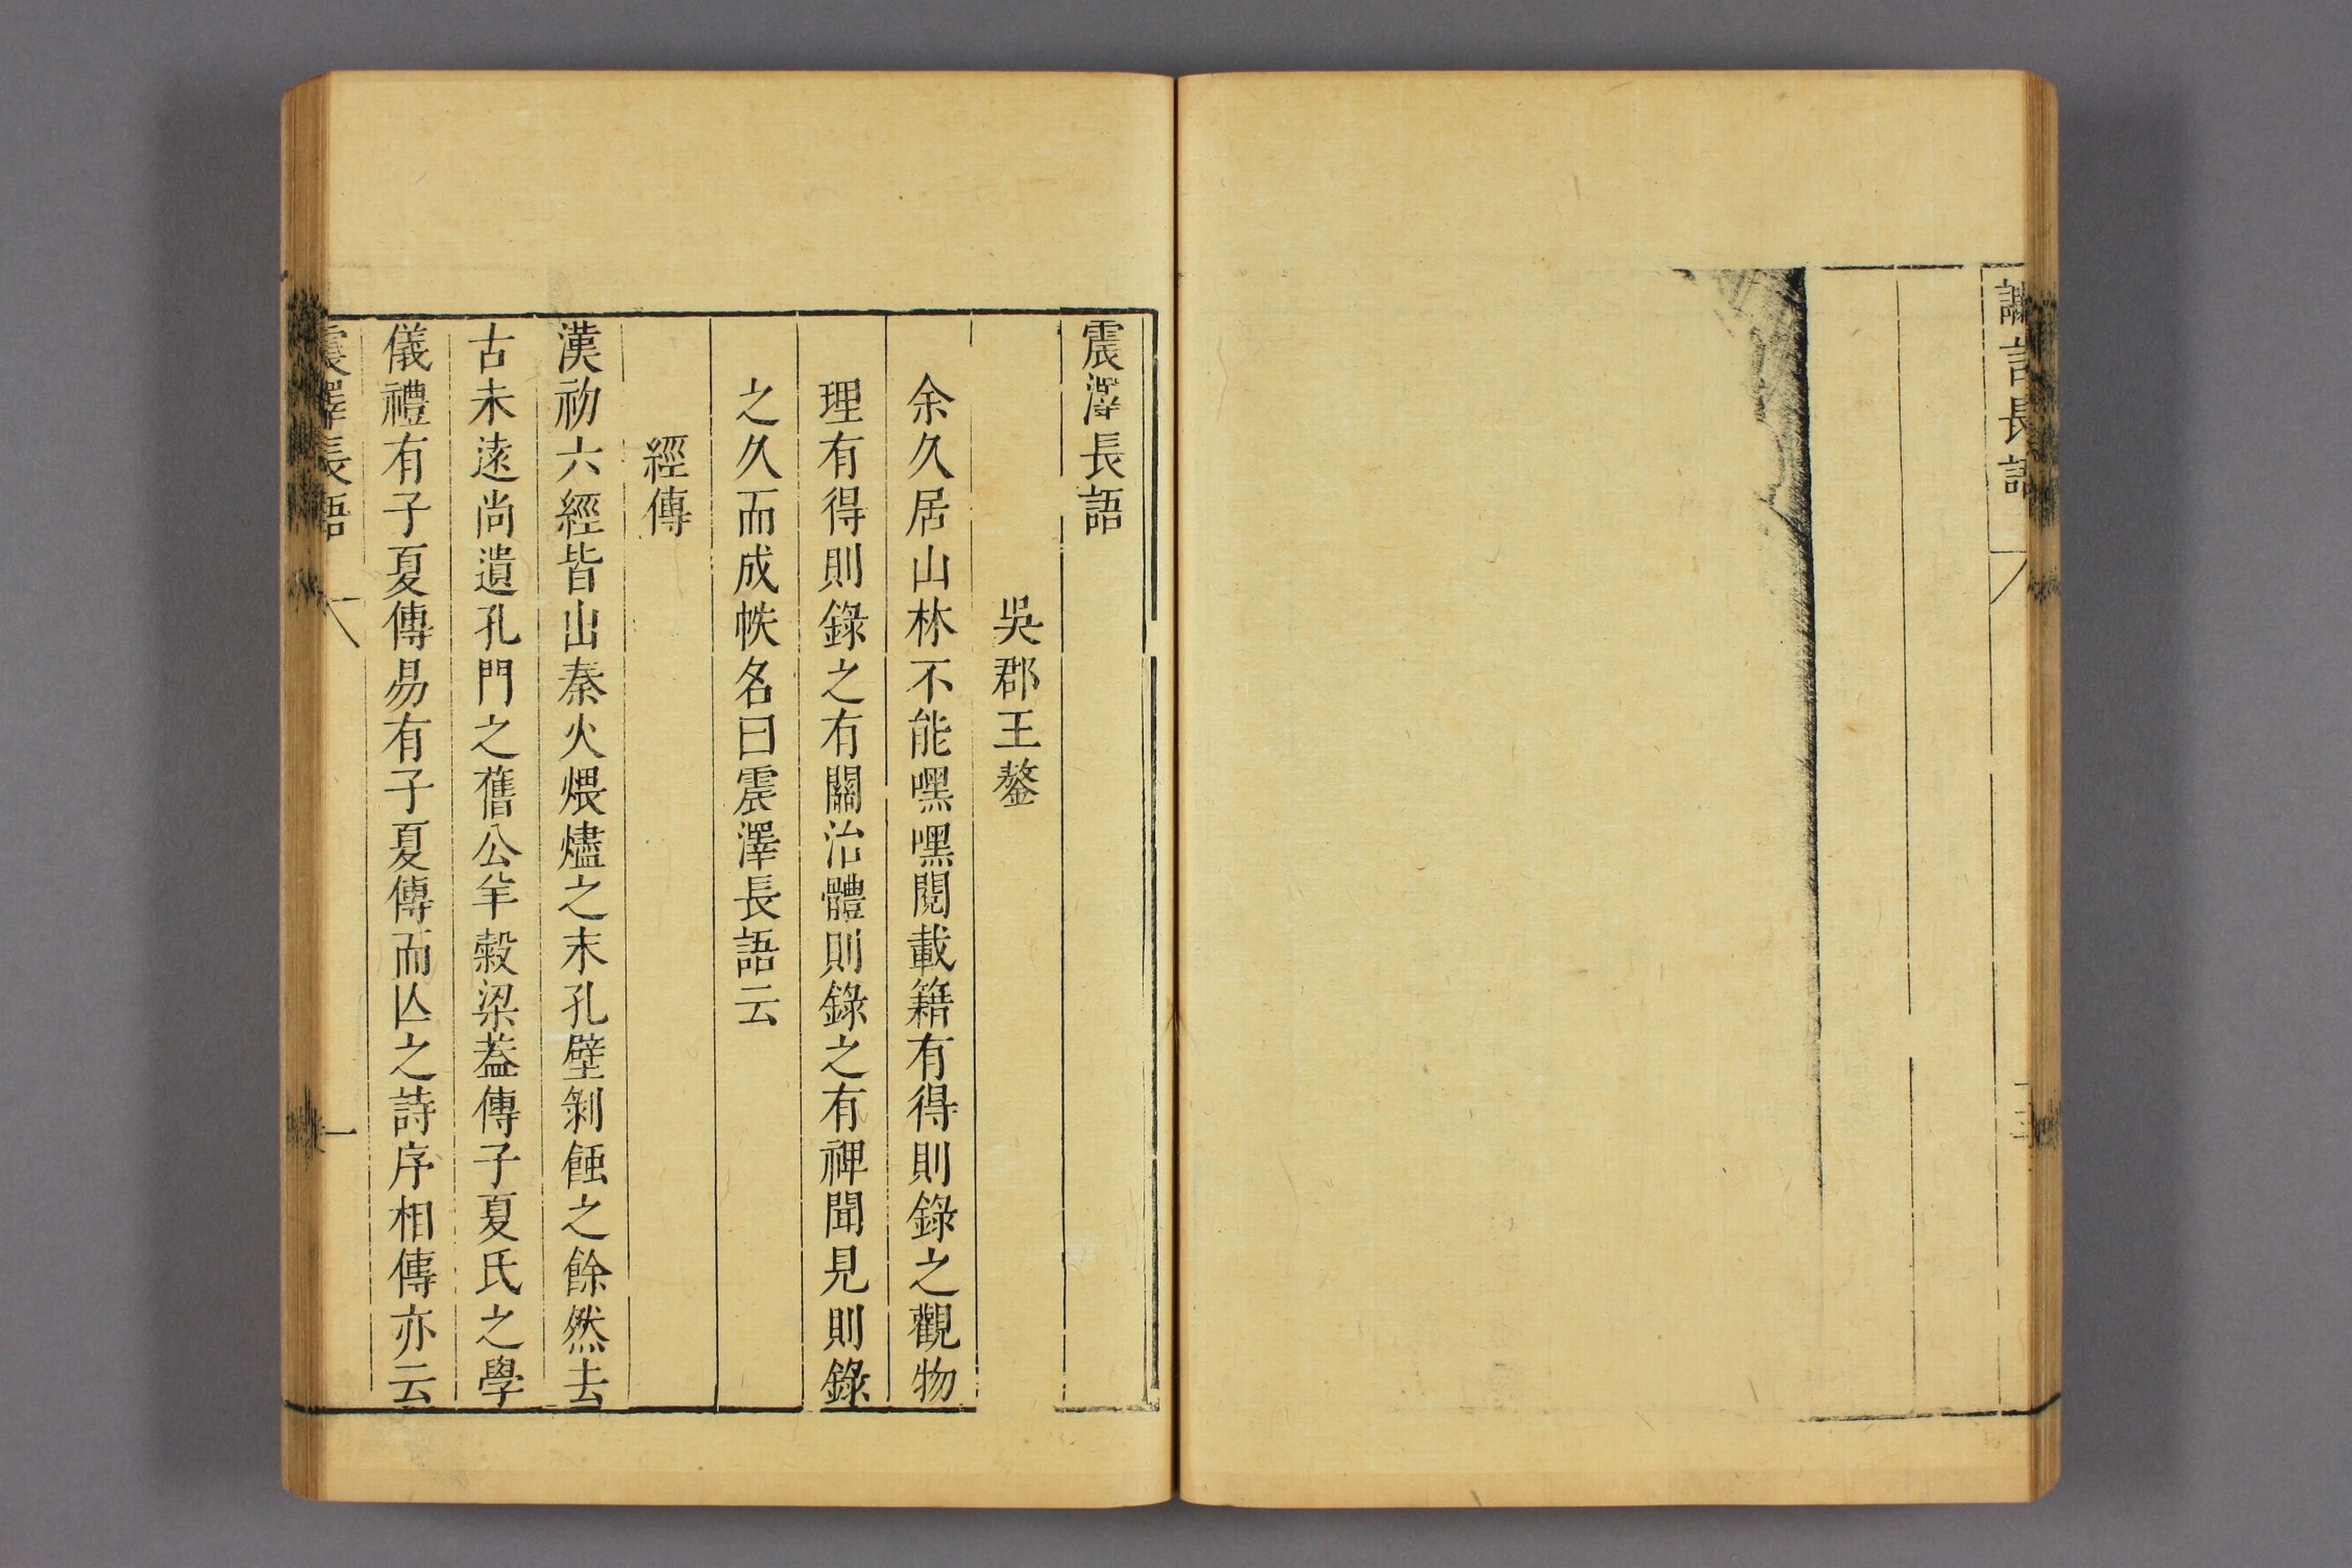 言長
震澤長語
吳郡王鏊
余久居山林不能嘿嘿閱載籍有得則錄之觀物
理有得則錄之有關治體則錄之有禆聞見則錄
之久而成帙名曰震澤長語云
經傳
漢初六經皆出秦火煨燼之末孔壁剝蝕之餘然去
古未遠尚遺孔門之舊公羊穀梁葢傳子夏氏之學
儀禮有子夏傳易有子夏傳而亾之詩序相傳亦云
震澤長語 一